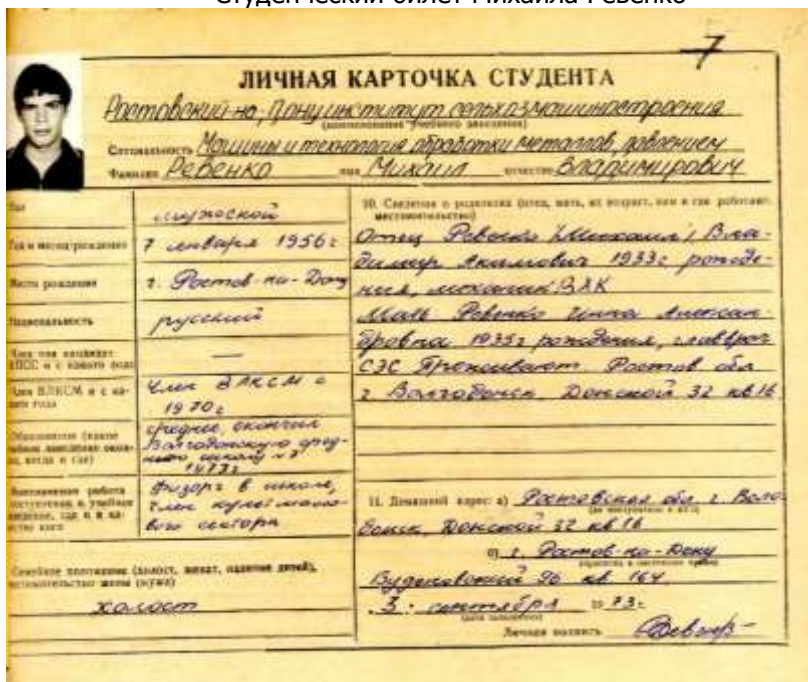 Студенческий билет Михаила Ревенко
7
ЛИЧНАЯ КАРТОЧКА СТУДЕНТА
Ростовский-на-Дону институт сельхозмашиностроения
(наименование учебного заведения)
Специальность Машины и технология обработки металлов давлением
Фамилия Ревенко имя Михаил отчество Владимирович
Пол мужской
Год и месяц рождения 7 января 1956г
Место рождения г. Ростов-на-Дону
Национальность русский
Член или кандидат КПСС и с какого года —
Член ВЛКСМ и с какого года Член ВЛКСМ с 1970г
Образование (какое учебное заведение окончил, когда и где) среднее, окончил Волгодонскую среднюю школу 1973г
Выполняемая работа до поступления в учебное заведение, где и в качестве кого физорг в школе, член культмассового сектора
Семейное положение (холост, женат, наличие детей),
местожительство жены (мужа)
холост
10. Сведения о родителях (отец, мать, их возраст, кем и где работают,
местожительство)
Отец Ревенко (Михаил) Вла-
димир Акимович 1933г рожде-
ния, механик
Мать Ревенко Инна Алексан-
дровна 1935г рождения, главврач
СЭС Проживают Ростов обл
г Волгодонск Донской 32 кв 16
11. Домашний адрес: а) Ростовская обл г. Волго-
донск, Донской 32 кв 16
б) г. Ростов-на-Дону
Буденовский 96 кв 164
"3" сентября 1973г.
(дата заполнения)
Личная подпись